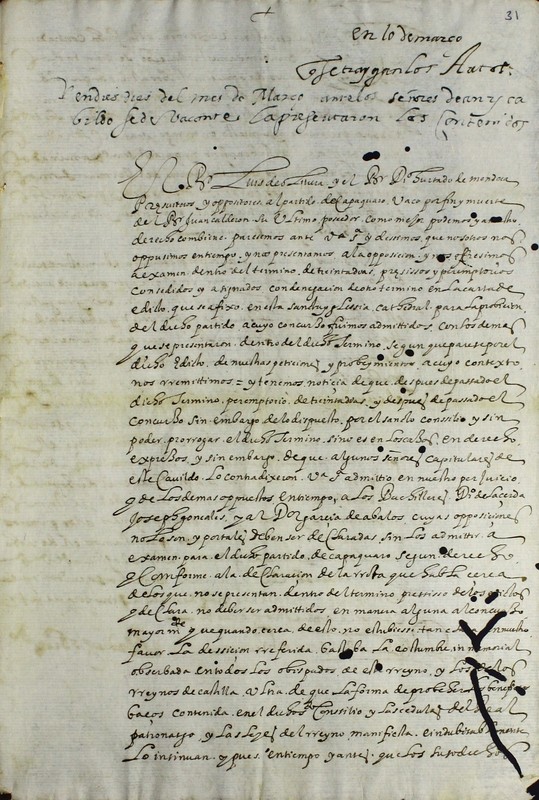 31
en 10 de março
q se traygan los Autos.
En dies dias del mes de Março ante los señores dean y ca
bildo sede Vacante la presentaron los Contenidos
El Br Luis de y el Br Do hurtado de mendoça
Presviteros y oppositores al partido de Capaguaro. Vaco por fin y muerte
de el Br Juan calderon su Ultimo posedor. como mejor podemos y a nro
derecho combiene. paresemos ante Va Sa y desimos que nosotros nos
oppusimos en tiempo y nos presentamos a la opposicion y nos ofresimos
a examen dentro del termino de treinta dias presissos y peremptorios
consedidos y asignados con denegacion de otro termino en la carta de
edicto que se afixo en esta sancta yglessia cathedral para la probicion
del dicho partido a cuyo concurso fuimos admittidos con los demas
que se presentaron dentro del dicho Termino segun que paresse por el
dicho Edicto de nuestras peticiones y probeymientos a cuyo contexto
nos rremittimos = y tenemos noticia de que despues de passado el
dicho Termino peremptorio de treinta dias y despues de passado el
concurso sin embargo de lo dispuesto por el sancto consilio y sin
poder prorrogar el dicho Termino sino es en los casos en derecho
expressos y sin embargo de que algunos señores capitulares de
este Cavildo lo contradixeron Va Sa admittio en nuestro perjuicio
y de los demas oppuestos en tiempo a los Bachilleres Do de la cerda
Joseph gonsales y al Dor garcia de abalos cuyas opposiciones
no lo son y por tales deben ser declaradas sin los admittir a
examen para el dicho partido de capaguaro segun derecho
y Conforme a la declaracion de la rrota que habla cerca
de los que no se presentan dentro del termino presisso de los edictos
y declara no deber ser admittidos en manera alguna al concurso
mayormte que quando cerca de esto no estubiesse tan en nuestro
favor la dession rreferida bastaba la costumbre inmemorial
observada en todos los obispados de este rreyno y los de los
rreynos de castilla Ultra de que la forma de probeher los beneficios
bacos contenida en el dicho so Consilio y las cedulas del Real
patronasgo y las Leyes del rreyno manifiesta e indubitablemente
lo intinuan. y pues en tiempo y antes que los susodichos